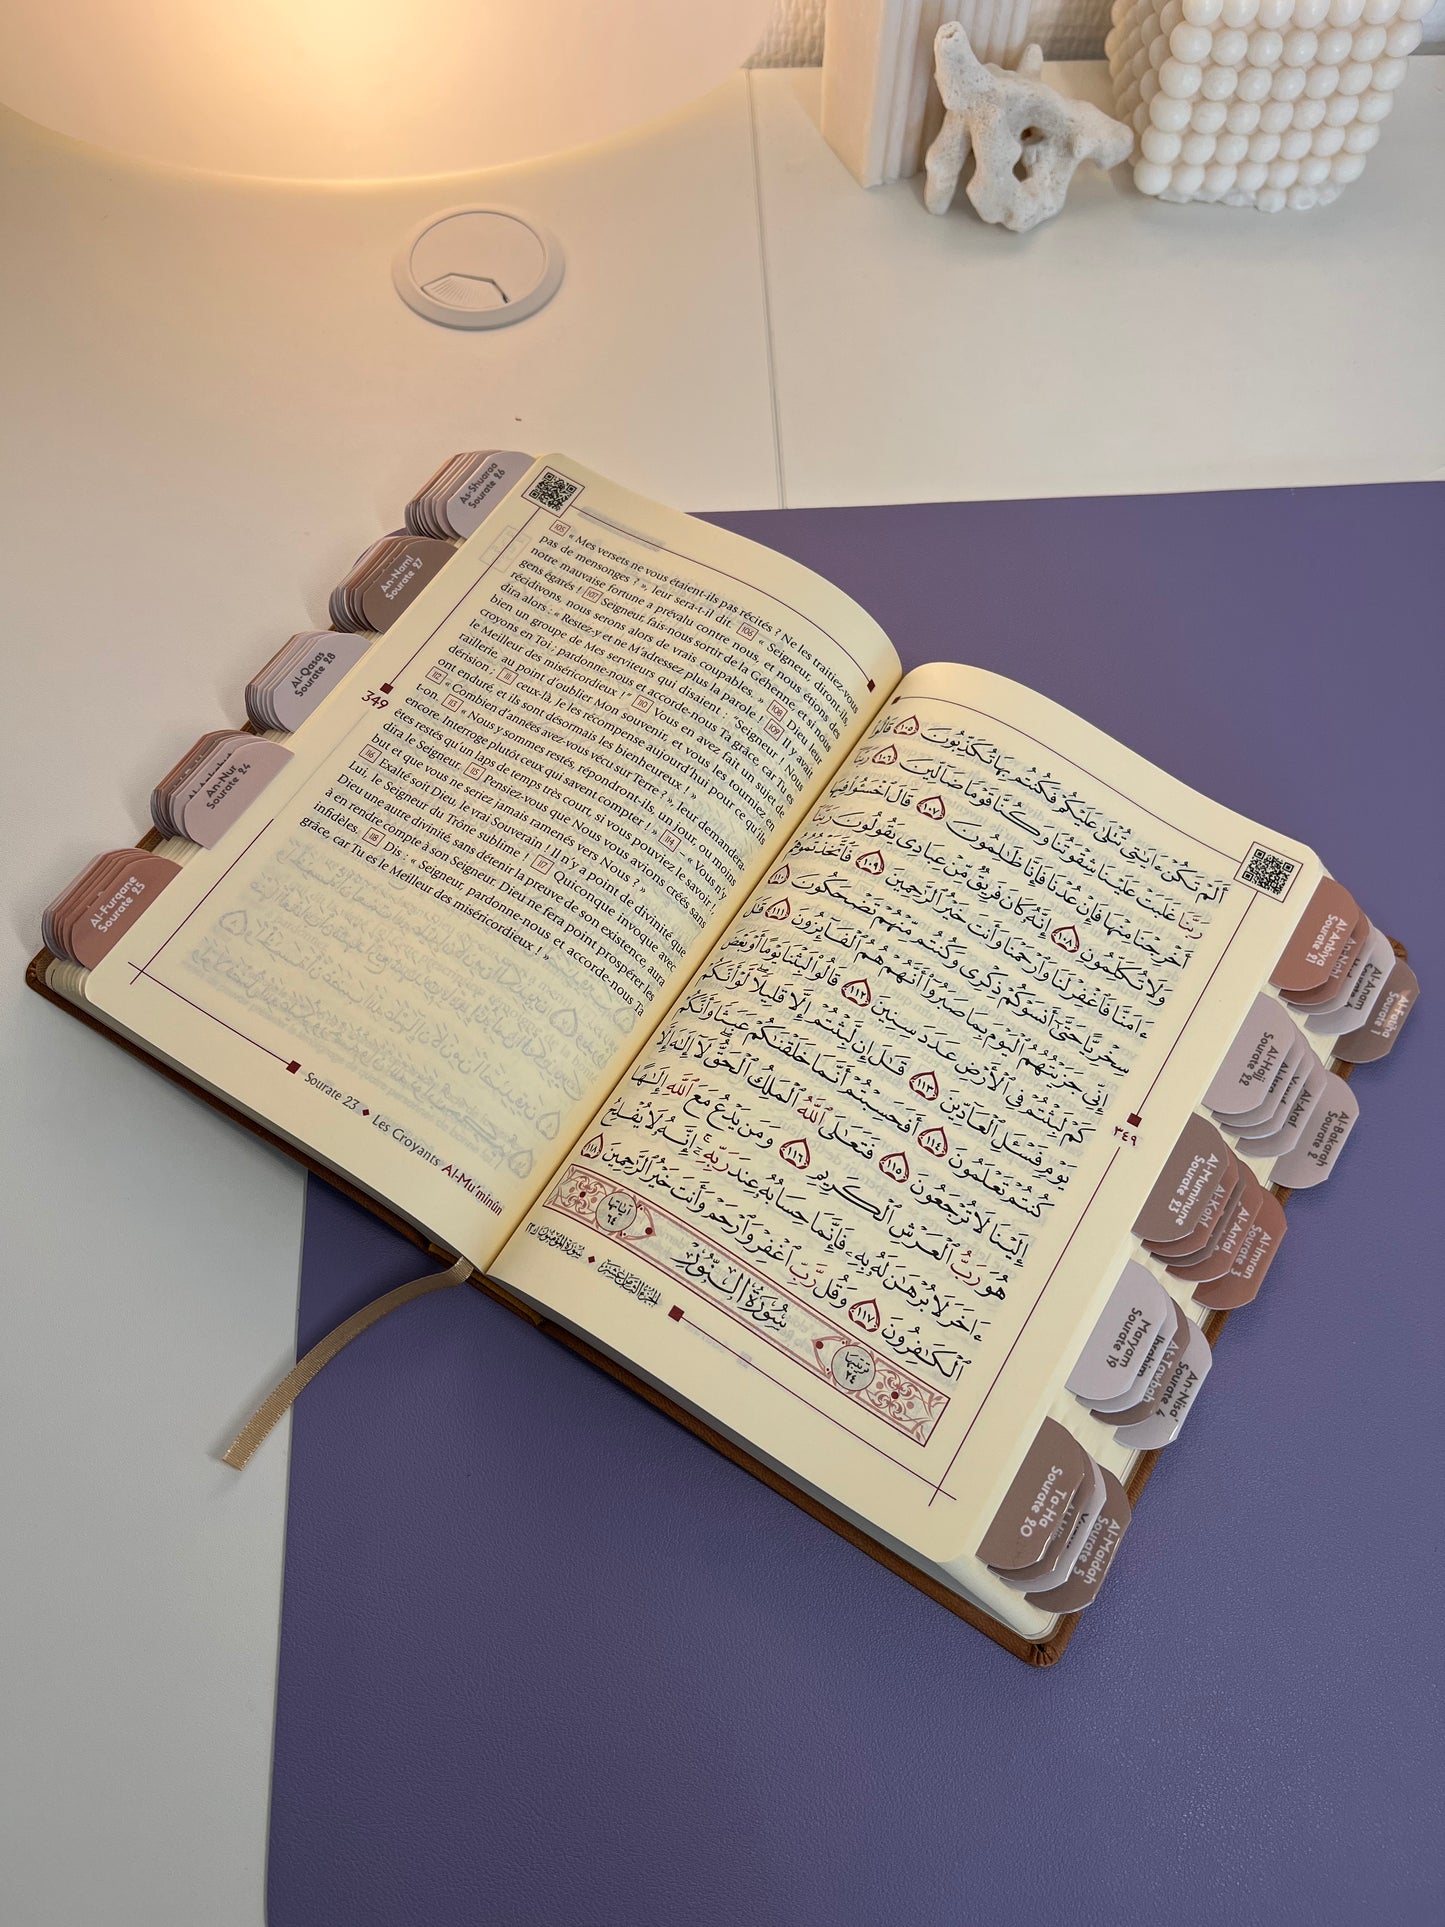 As-Shuaraa
Sourate 26
An-Naml
Sourate 27
Al-Qasas
Sourate 28
An-Nur
Sourate 24
Al-Furqane
Sourate 25
105 « Mes versets ne vous étaient-ils pas récités ? Ne les traitiez-vous
pas de mensonges ? », leur sera-t-il dit. 106 « Seigneur, diront-ils,
notre mauvaise fortune a prévalu contre nous, et nous étions des
gens égarés ! 107 Seigneur, fais-nous sortir de la Géhenne, et si nous
récidivons, nous serons alors de vrais coupables. » 108 Dieu leur
dira alors : « Restez-y et ne M'adressez plus la parole ! 109 Il y avait
bien un groupe de Mes serviteurs qui disaient : "Seigneur ! Nous
croyons en Toi ; pardonne-nous et accorde-nous Ta grâce, car Tu es
le Meilleur des miséricordieux !" 110 Vous en avez fait un sujet de
raillerie, au point d'oublier Mon souvenir, et vous les tourniez en
dérision ; 111 ceux-là, je les récompense aujourd'hui pour ce qu'ils
ont enduré, et ils sont désormais les bienheureux ! »
112 « Combien d'années avez-vous vécu sur Terre ? », leur demandera-
t-on. 113 « Nous y sommes restés, répondront-ils, un jour, ou moins
encore. Interroge plutôt ceux qui savent compter ! » 114 – « Vous n'y
êtes restés qu'un laps de temps très court, si vous pouviez le savoir !,
dira le Seigneur. 115 Pensiez-vous que Nous vous avions créés sans
but et que vous ne seriez jamais ramenés vers Nous ? »
116 Exalté soit Dieu, le vrai Souverain ! Il n'y a point de divinité que
Lui, le Seigneur du Trône sublime ! 117 Quiconque invoque avec
Dieu une autre divinité, sans détenir la preuve de son existence, aura
à en rendre compte à son Seigneur. Dieu ne fera point prospérer les
infidèles. 118 Dis : « Seigneur, pardonne-nous et accorde-nous Ta
grâce, car Tu es le Meilleur des miséricordieux ! »
349
Sourate 23 ◆ Les Croyants Al-Mu'minûn
أَلَمۡ تَكُنۡ ءَايَٰتِي تُتۡلَىٰ عَلَيۡكُمۡ فَكُنتُم بِهَا تُكَذِّبُونَ ١٠٥ قَالُواْ
رَبَّنَا غَلَبَتۡ عَلَيۡنَا شِقۡوَتُنَا وَكُنَّا قَوۡمٗا ضَآلِّينَ ١٠٦ رَبَّنَآ
أَخۡرِجۡنَا مِنۡهَا فَإِنۡ عُدۡنَا فَإِنَّا ظَٰلِمُونَ ١٠٧ قَالَ ٱخۡسَـُٔواْ فِيهَا
وَلَا تُكَلِّمُونِ ١٠٨ إِنَّهُۥ كَانَ فَرِيقٞ مِّنۡ عِبَادِي يَقُولُونَ رَبَّنَآ
ءَامَنَّا فَٱغۡفِرۡ لَنَا وَٱرۡحَمۡنَا وَأَنتَ خَيۡرُ ٱلرَّٰحِمِينَ ١٠٩ فَٱتَّخَذۡتُمُوهُمۡ
سِخۡرِيًّا حَتَّىٰٓ أَنسَوۡكُمۡ ذِكۡرِي وَكُنتُم مِّنۡهُمۡ تَضۡحَكُونَ ١١٠
إِنِّي جَزَيۡتُهُمُ ٱلۡيَوۡمَ بِمَا صَبَرُوٓاْ أَنَّهُمۡ هُمُ ٱلۡفَآئِزُونَ ١١١ قَٰلَ
كَمۡ لَبِثۡتُمۡ فِي ٱلۡأَرۡضِ عَدَدَ سِنِينَ ١١٢ قَالُواْ لَبِثۡنَا يَوۡمًا أَوۡ بَعۡضَ
يَوۡمٖ فَسۡـَٔلِ ٱلۡعَآدِّينَ ١١٣ قَٰلَ إِن لَّبِثۡتُمۡ إِلَّا قَلِيلٗاۖ لَّوۡ أَنَّكُمۡ
كُنتُمۡ تَعۡلَمُونَ ١١٤ أَفَحَسِبۡتُمۡ أَنَّمَا خَلَقۡنَٰكُمۡ عَبَثٗا وَأَنَّكُمۡ
إِلَيۡنَا لَا تُرۡجَعُونَ ١١٥ فَتَعَٰلَى ٱللَّهُ ٱلۡمَلِكُ ٱلۡحَقُّۖ لَآ إِلَٰهَ إِلَّا
هُوَ رَبُّ ٱلۡعَرۡشِ ٱلۡكَرِيمِ ١١٦ وَمَن يَدۡعُ مَعَ ٱللَّهِ إِلَٰهًا
ءَاخَرَ لَا بُرۡهَٰنَ لَهُۥ بِهِۦ فَإِنَّمَا حِسَابُهُۥ عِندَ رَبِّهِۦٓۚ إِنَّهُۥ لَا يُفۡلِحُ
ٱلۡكَٰفِرُونَ ١١٧ وَقُل رَّبِّ ٱغۡفِرۡ وَٱرۡحَمۡ وَأَنتَ خَيۡرُ ٱلرَّٰحِمِينَ ١١٨
ترتيبها ٢٤
سُورَةُ النُّورِ
آياتها ٦٤
٣٤٩
الجزء الثامن عشر ◆ سورة المؤمنون ٢٣
Al-Anbiya
Sourate 21
Al-Anam
Al-Fatiha
Sourate 1
Al-Hajj
Sourate 22
Al-Araf
Al-Bakarah
Sourate 2
Al-Muminune
Sourate 23
Al-Kahf
Al-Anfal
Al-Imran
Sourate 3
Maryam
Sourate 19
Ibrahim
At-Tawbah
An-Nisa'
Sourate 4
Ta-Ha
Sourate 20
Al-Maidah
Sourate 5